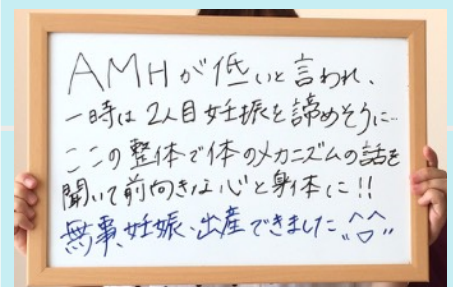 AMHが低いと言われ、
一時は2人目妊娠を諦めそうに…
ここの整体で体のメカニズムの話を
聞いて前向きな心と身体に!!
無事、妊娠、出産できました^▽^